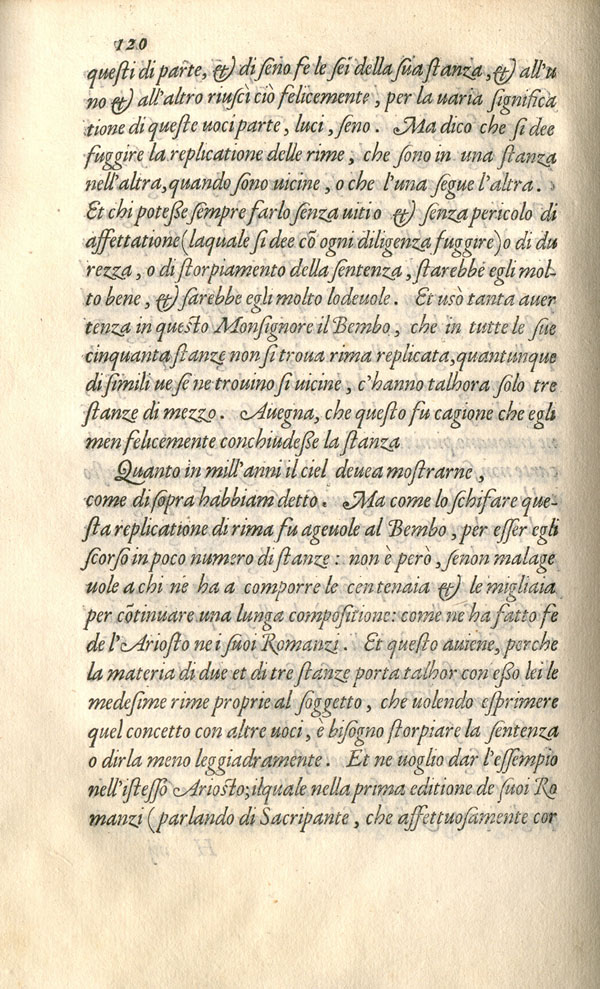 120
questi di parte, & di seno fe le sei della sua stanza, & all'u
no & all'altro riuscì ciò felicemente, per la uaria significa
tione di queste uoci parte, luci, seno. Ma dico che si dee
fuggire la replicatione delle rime, che sono in una stanza
nell'altra, quando sono uicine, o che l'una segue l'altra.
Et chi potesse sempre farlo senza uitio & senza pericolo di
affettatione (laquale si dee cō ogni diligenza fuggire) o di du
rezza, o di storpiamento della sentenza, starebbe egli mol-
to bene, & sarebbe egli molto lodeuole. Et usò tanta auer
tenza in questo Monsignore il Bembo, che in tutte le sue
cinquanta stanze non si troua rima replicata, quantunque
di simili ue se ne trouino si uicine, c'hanno talhora solo tre
stanze di mezzo. Auegna, che questo fu cagione che egli
men felicemente conchiudesse la stanza
Quanto in mill'anni il ciel deuea mostrarne,
come di sopra habbiam detto. Ma come lo schifare que-
sta replicatione di rima fu ageuole al Bembo, per esser egli
scorso in poco numero di stanze: non è però, senon malage
uole a chi ne ha a comporre le centenaia & le migliaia
per cōtinuare una lunga compositione: come ne ha fatto fe
de l'Ariosto ne i suoi Romanzi. Et questo auiene, perche
la materia di due et di tre stanze porta talhor con esso lei le
medesime rime proprie al soggetto, che uolendo esprimere
quel concetto con altre uoci, è bisogno storpiare la sentenza
o dirla meno leggiadramente. Et ne uoglio dar l'essempio
nell'istesso Ariosto; ilquale nella prima editione de suoi Ro
manzi (parlando di Sacripante, che affettuosamente cor